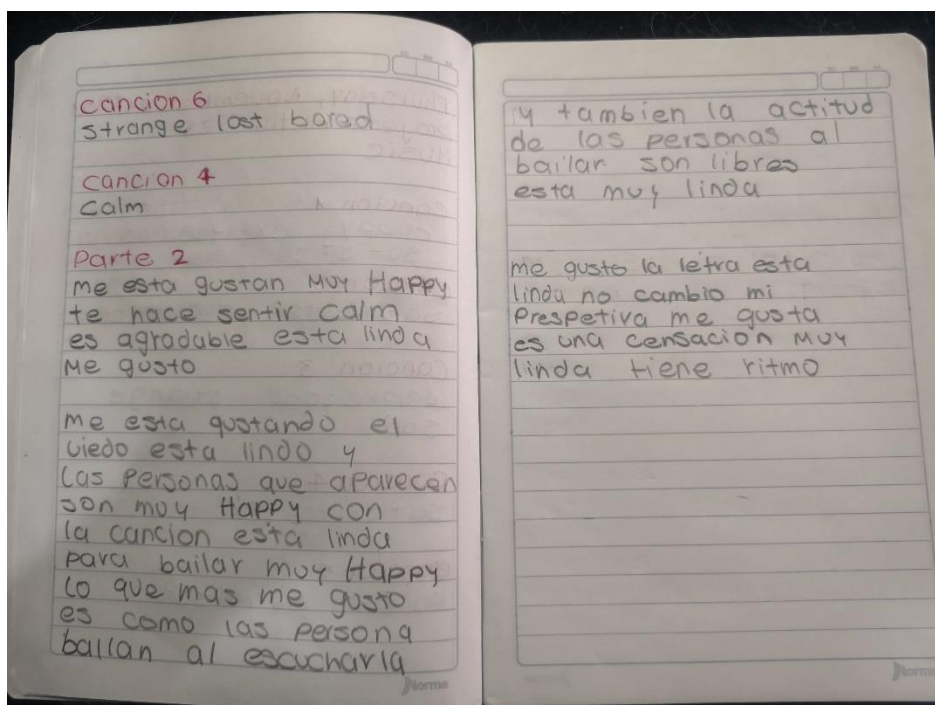 cancion 6
strange lost bored
cancion 4
calm
Parte 2
me esta gustan MUY Happy
te hace sentir calm
es agradable esta linda
Me gusto
me esta gustando el
viedo esta lindo y
Las Personas que aparecen
son muy Happy con
la cancion esta linda
para bailar muy Happy
Lo que mas me gusto
es como las persona
bailan al escucharla
Norma
y tambien la actitud
de las personas al
bailar son libres
esta muy linda
me gusto la letra esta
linda no cambio mi
Prespetiva me gusta
es una censacion MUY
linda tiene ritmo
Norma